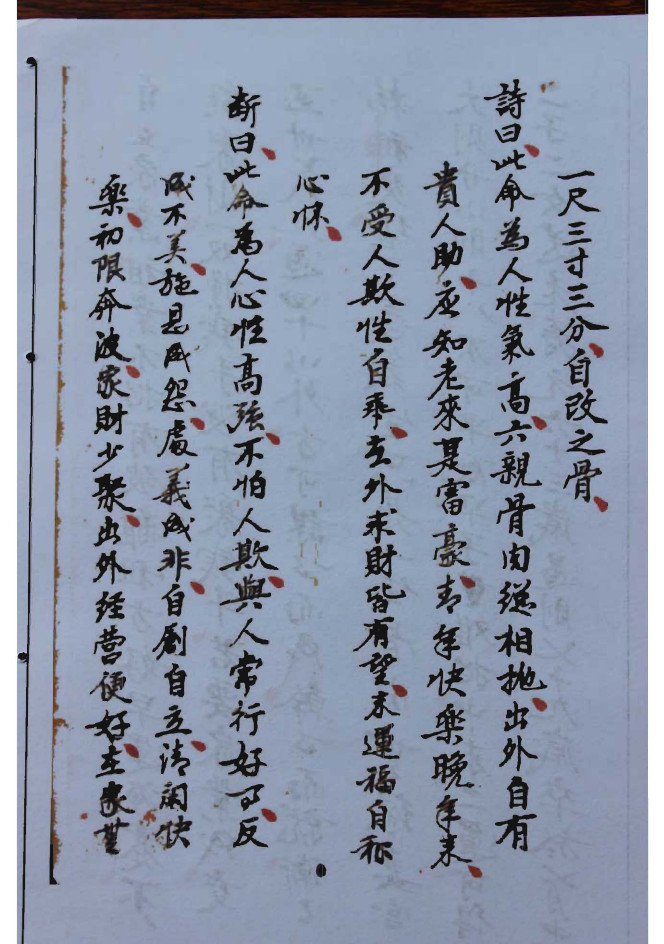 一尺三寸三分、自改之骨、
詩曰、此命為人性氣高、六親骨肉總相拋、出外自有
貴人助、应知老來是富豪、青年快樂晚年來、
不受人欺性自乖、去外求財皆有望、末運福自称
心怀、
断曰、此命為人心性高強、不怕人欺、與人常行好了、反
成不美、施恩成怨、處義成非、自創自立、清闲快
樂、初限奔波、家財少聚、出外经营便好、在家世